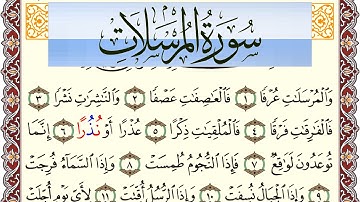 سورة المرسلات
وَالْمُرْسَلَاتِ عُرْفًا ١ فَالْعَاصِفَاتِ عَصْفًا ٢ وَالنَّاشِرَاتِ نَشْرًا ٣
فَالْفَارِقَاتِ فَرْقًا ٤ فَالْمُلْقِيَاتِ ذِكْرًا ٥ عُذْرًا أَوْ نُذْرًا ٦ إِنَّمَا
تُوعَدُونَ لَوَاقِعٌ ٧ فَإِذَا النُّجُومُ طُمِسَتْ ٨ وَإِذَا السَّمَاءُ فُرِجَتْ
٩ وَإِذَا الْجِبَالُ نُسِفَتْ ١٠ وَإِذَا الرُّسُلُ أُقِّتَتْ ١١ لِأَيِّ يَوْمٍ أُجِّلَتْ